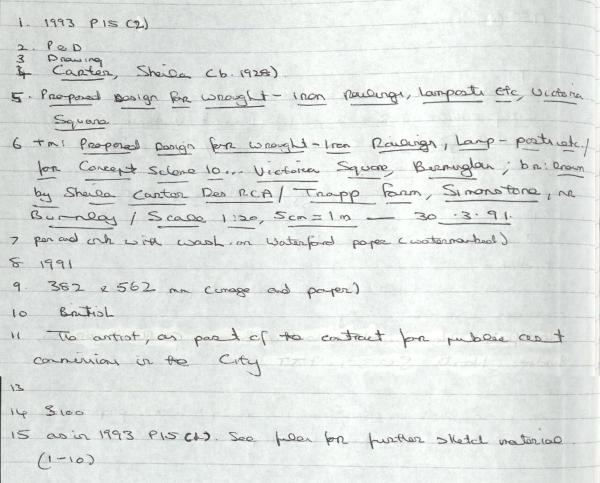 1. 1993 P15 (2)
2. P&D
3 Drawing
4 Carter, Sheila (b. 1928)
5. Proposed Design for Wrought-Iron Railings, lamposts etc, Victoria
Square
6 tm: Proposed Design for Wrought-Iron Railings, Lamp-posts etc./
for Concept Scheme 10... Victoria Square, Birmingham; br: Drawn
by Sheila Carter Des RCA / Trapp Farm, Simonstone, nr
Burnley / Scale 1:20, 5cm = 1m — 30.3.91.
7 pen and ink with wash on Waterford paper (watermarked)
8 1991
9. 382 x 562 mm (image and paper)
10 British
11 The artist, as part of the contract for public art
commissions in the City
13
14 £100
15 as in 1993 P15 (1). See for further sketch material
(1-10)